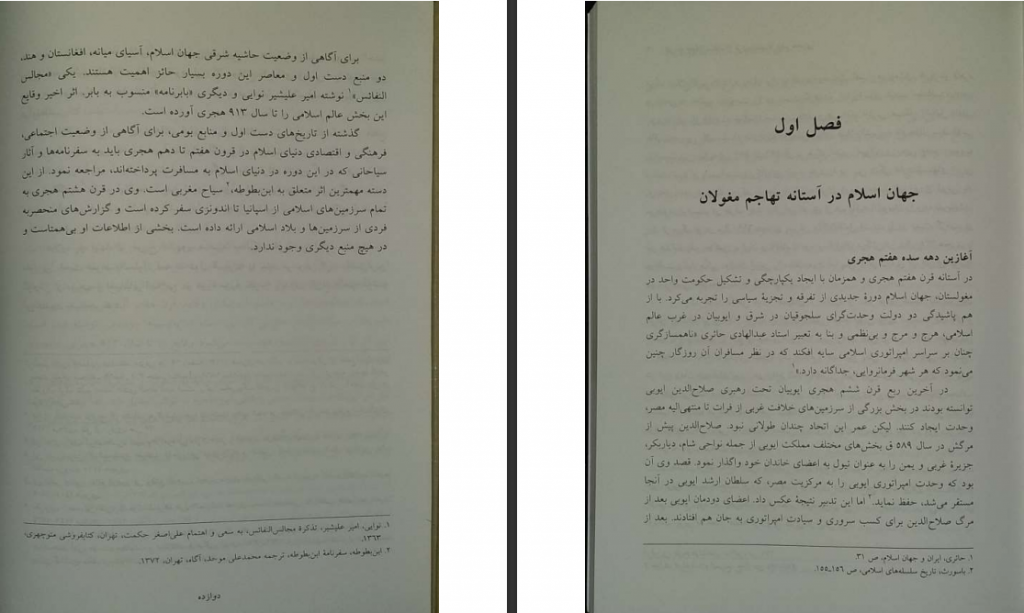 برای آگاهی از وضعیت حاشیه شرقی جهان اسلام، آسیای میانه، افغانستان و هند،
دو منبع دست اول و معاصر این دوره بسیار حائز اهمیت هستند. یکی «مجالس
النفائس»۱ نوشته امیر علیشیر نوایی و دیگری «بابرنامه» منسوب به بابر. اثر اخیر وقایع
این بخش عالم اسلامی را تا سال ۹۱۳ هجری آورده است.
گذشته از تاریخ‌های دست اول و منابع بومی، برای آگاهی از وضعیت اجتماعی،
فرهنگی و اقتصادی دنیای اسلام در قرون هفتم تا دهم هجری باید به سفرنامه‌ها و آثار
سیاحانی که در این دوره در دنیای اسلام به مسافرت پرداخته‌اند، مراجعه نمود. از این
دسته مهمترین اثر متعلق به ابن‌بطوطه،۲ سیاح مغربی است. وی در قرن هشتم هجری به
تمام سرزمین‌های اسلامی از اسپانیا تا اندونزی سفر کرده است و گزارش‌های منحصربه
فردی از سرزمین‌ها و بلاد اسلامی ارائه داده است. بخشی از اطلاعات او بی‌همتاست و
در هیچ منبع دیگری وجود ندارد.
۱. نوایی، امیر علیشیر، تذکرة مجالس‌النفائس، به سعی و اهتمام علی‌اصغر حکمت، تهران، کتابفروشی منوچهری،
۱۳۶۳.
۲. ابن‌بطوطه، سفرنامۀ ابن‌بطوطه، ترجمه محمدعلی موحد، آگاه، تهران، ۱۳۷۲.
دوازده
فصل اول
جهان اسلام در آستانه تهاجم مغولان
آغازین دهه سده هفتم هجری
در آستانه قرن هفتم هجری و همزمان با ایجاد یکپارچگی و تشکیل حکومت واحد در
مغولستان، جهان اسلام دورۀ جدیدی از تفرقه و تجزیۀ سیاسی را تجربه می‌کرد. با از
هم پاشیدگی دو دولت وحدت‌گرای سلجوقیان در شرق و ایوبیان در غرب عالم
اسلامی، هرج و مرج و بی‌نظمی و بنا به تعبیر استاد عبدالهادی حائری «ناهمسازگری
چنان بر سراسر امپراتوری اسلامی سایه افکند که در نظر مسافران آن روزگار چنین
می‌نمود که هر شهر فرمانروایی، جداگانه دارد.»۱
در آخرین ربع قرن ششم هجری ایوبیان تحت رهبری صلاح‌الدین ایوبی
توانسته بودند در بخش بزرگی از سرزمین‌های خلافت غربی از فرات تا منتهی‌الیه مصر،
وحدت ایجاد کنند. لیکن عمر این اتحاد چندان طولانی نبود. صلاح‌الدین پیش از
مرگش در سال ۵۸۹ ق بخش‌های مختلف مملکت ایوبی از جمله نواحی شام، دیاربکر،
جزیرۀ غربی و یمن را به عنوان تیول به اعضای خاندان خود واگذار نمود. قصد وی آن
بود که وحدت امپراتوری ایوبی را به مرکزیت مصر، که سلطان ارشد ایوبی در آنجا
مستقر می‌شد، حفظ نماید.۲ اما این تدبیر نتیجۀ عکس داد. اعضای دودمان ایوبی بعد از
مرگ صلاح‌الدین برای کسب سروری و سیادت امپراتوری به جان هم افتادند. بعد از
۱. حائری، ایران و جهان اسلام، ص ۳۱.
۲. باسورث، تاریخ سلسله‌های اسلامی، ص ۱۵۶ـ۱۵۵.